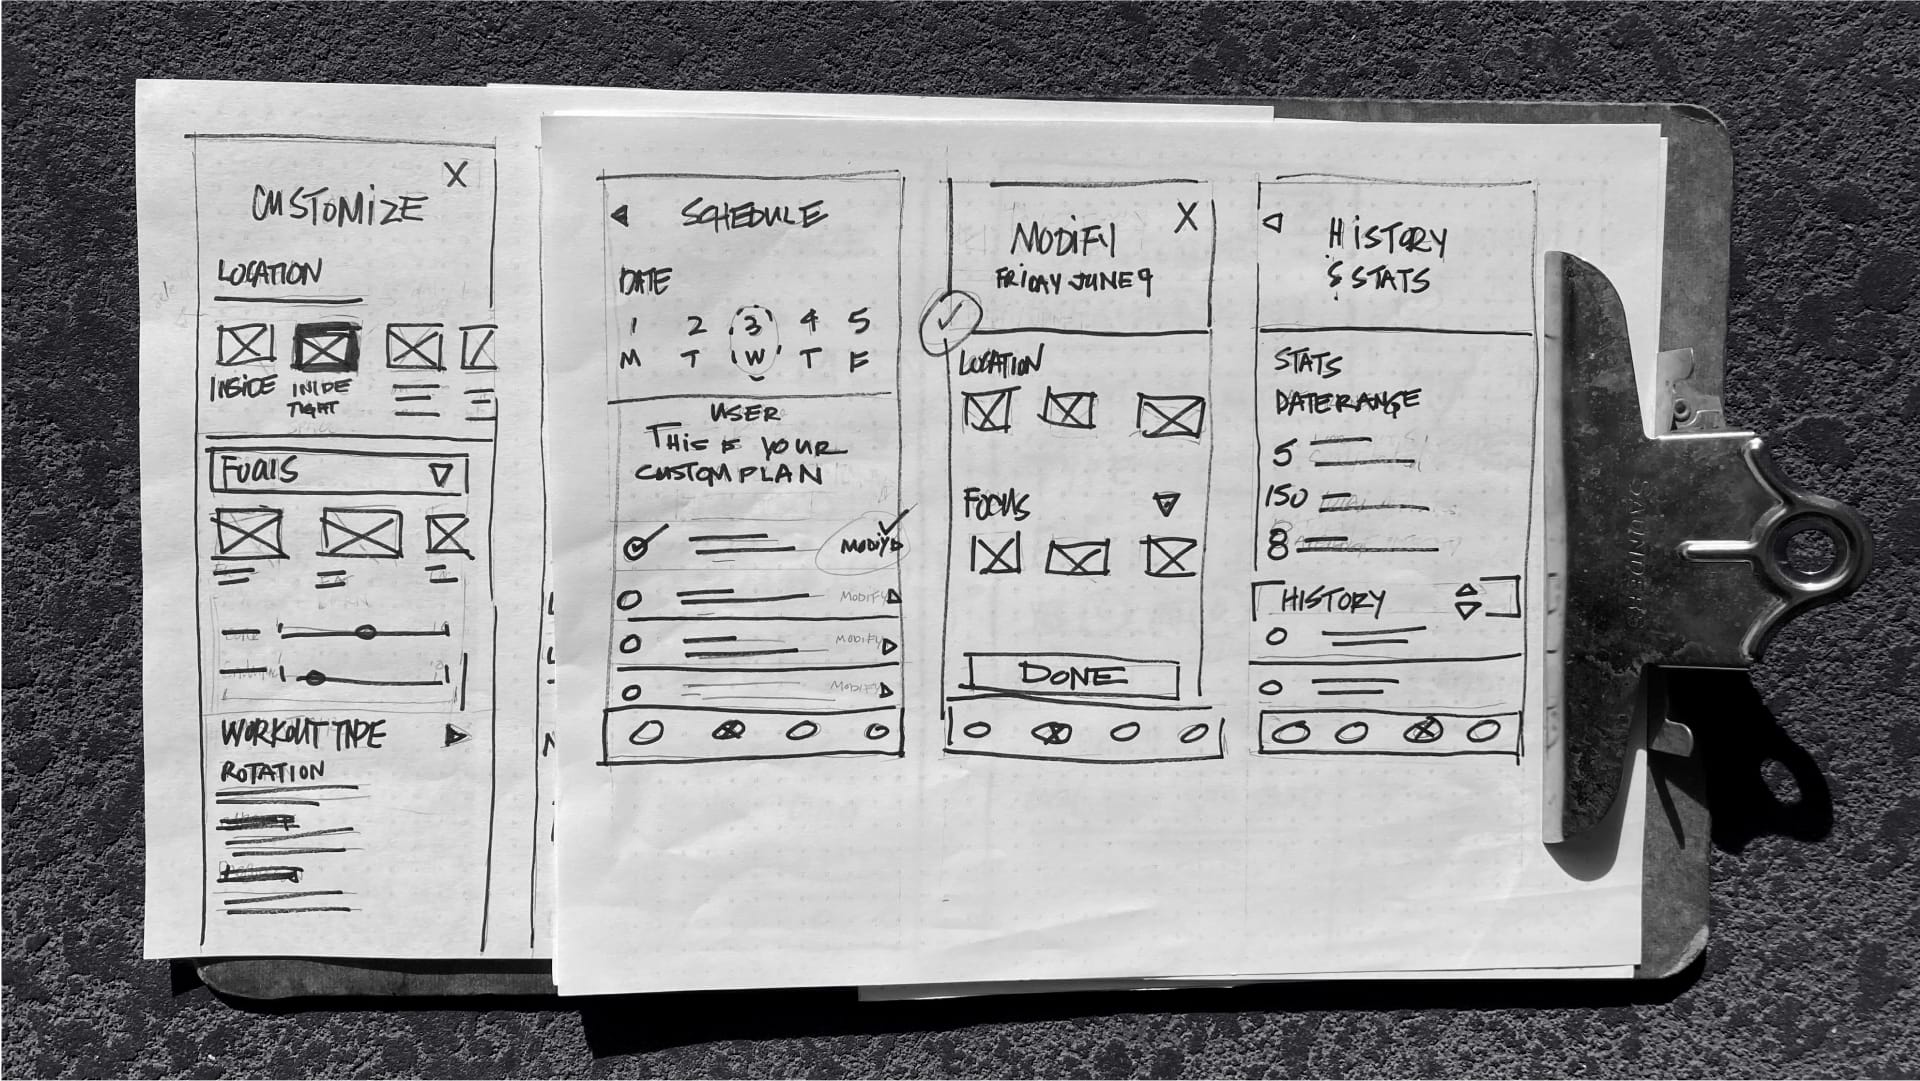 X
CUSTOMIZE
LOCATION
INSIDE
INIDE
TIGHT
FOCUS
WORKOUT TYPE
ROTATION
SCHEDULE
DATE
1 2 3 4 5
M T W T F
USER
THIS IS YOUR
CUSTOM PLAN
MODIFY
MODIFY
MODIFY
MODIFY
X
MODIFY
FRIDAY JUNE 9
LOCATION
FOCUS
DONE
HISTORY
& STATS
STATS
DATE RANGE
5
150
8
HISTORY
SAUNDERS